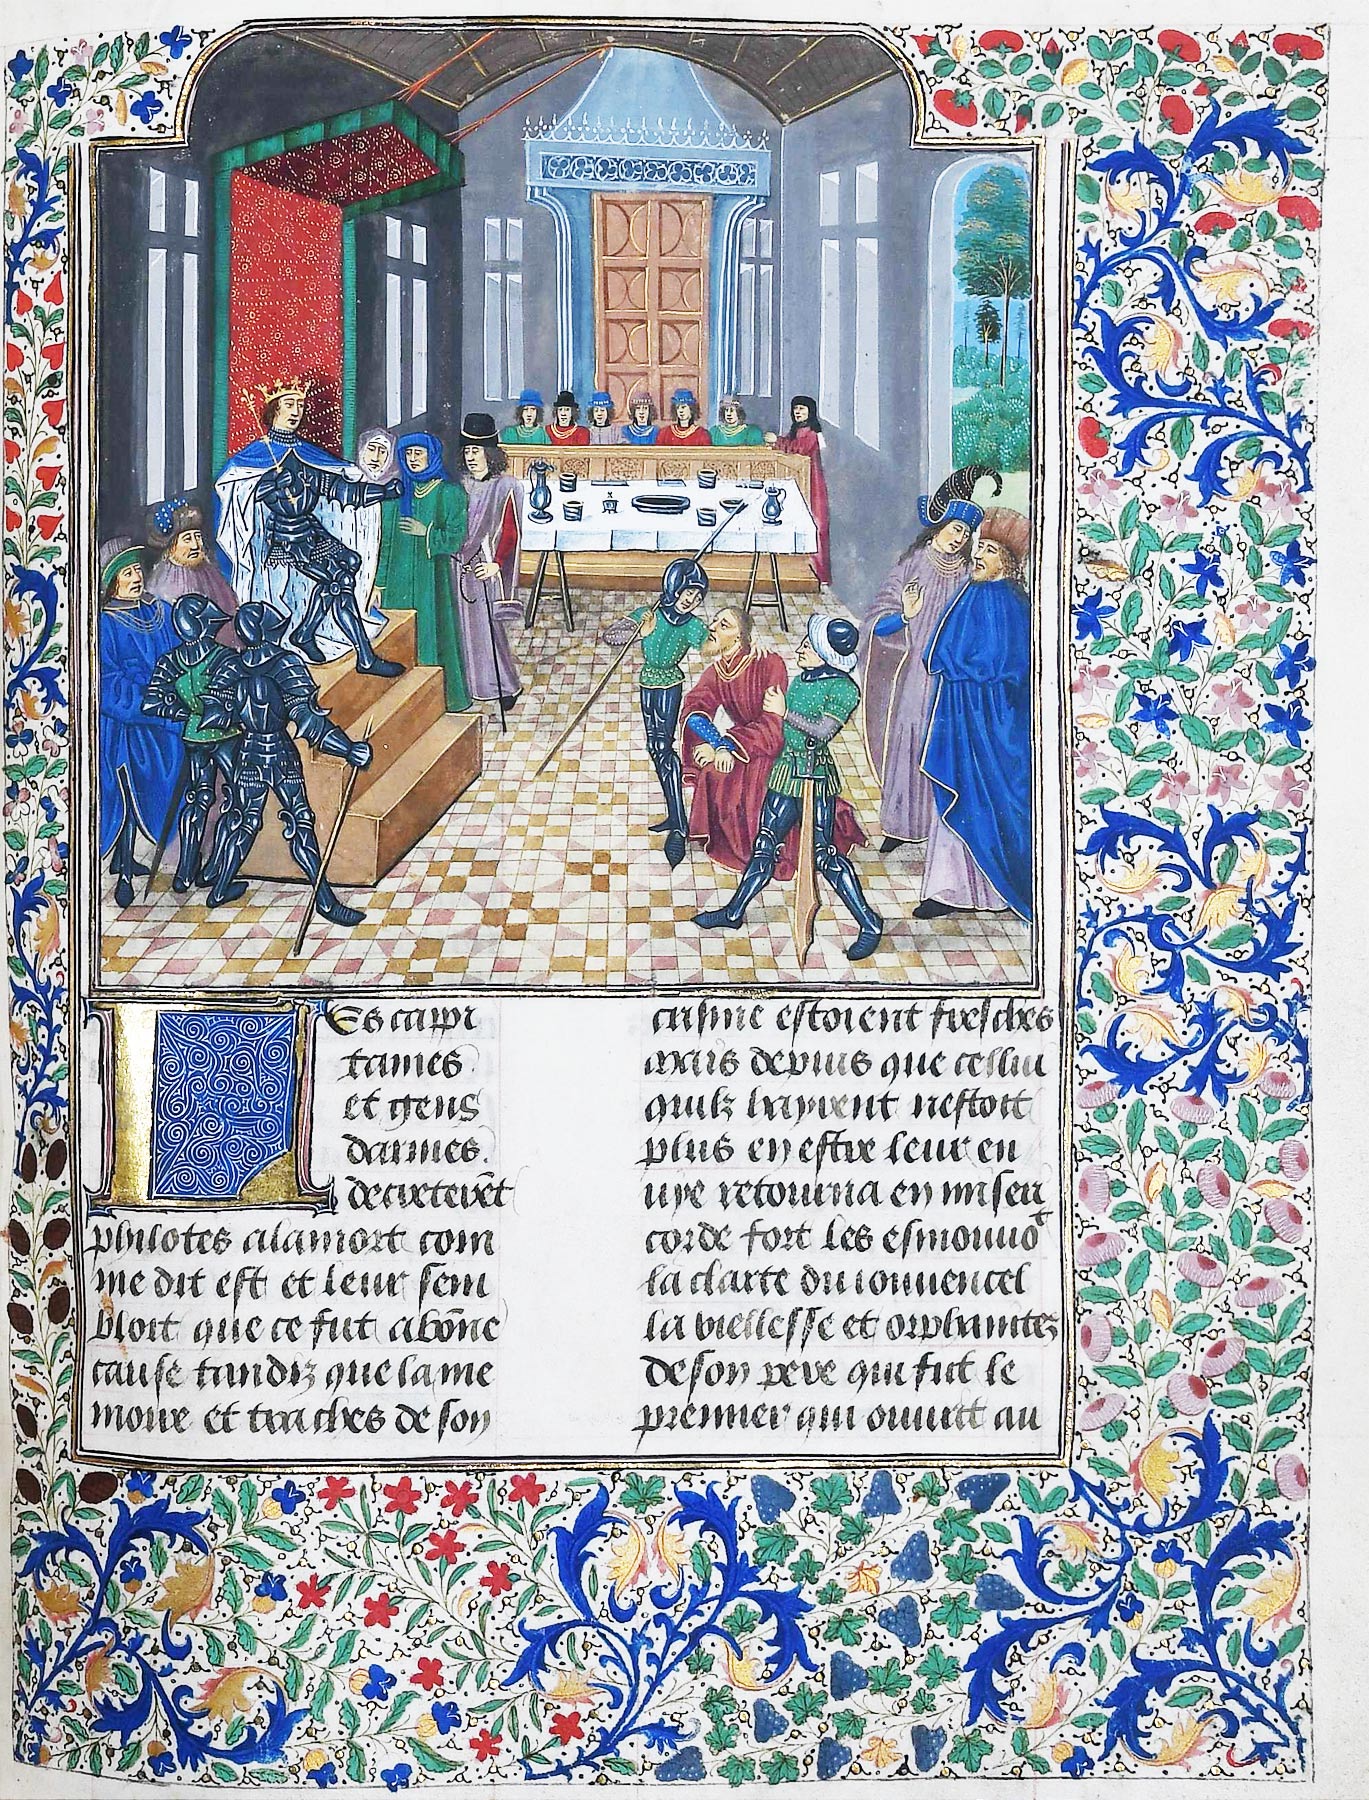 Les cappi
taines
et gens
darmes.
decreterēt
philotes alamort com
me dit est et leur sem
bloit que ce fut abōne
cause tandiz que la me
moire et traches de son
crisme estoient fresches
Mais depuis que cellui
quilz hayoient nestoit
plus en estre leur en
uye retourna en miseri
corde fort les esmouuoᵗ
la clarte du iouuencel
la viellesse et orphanitez
de son pere qui fut le
premier qui ouurit au